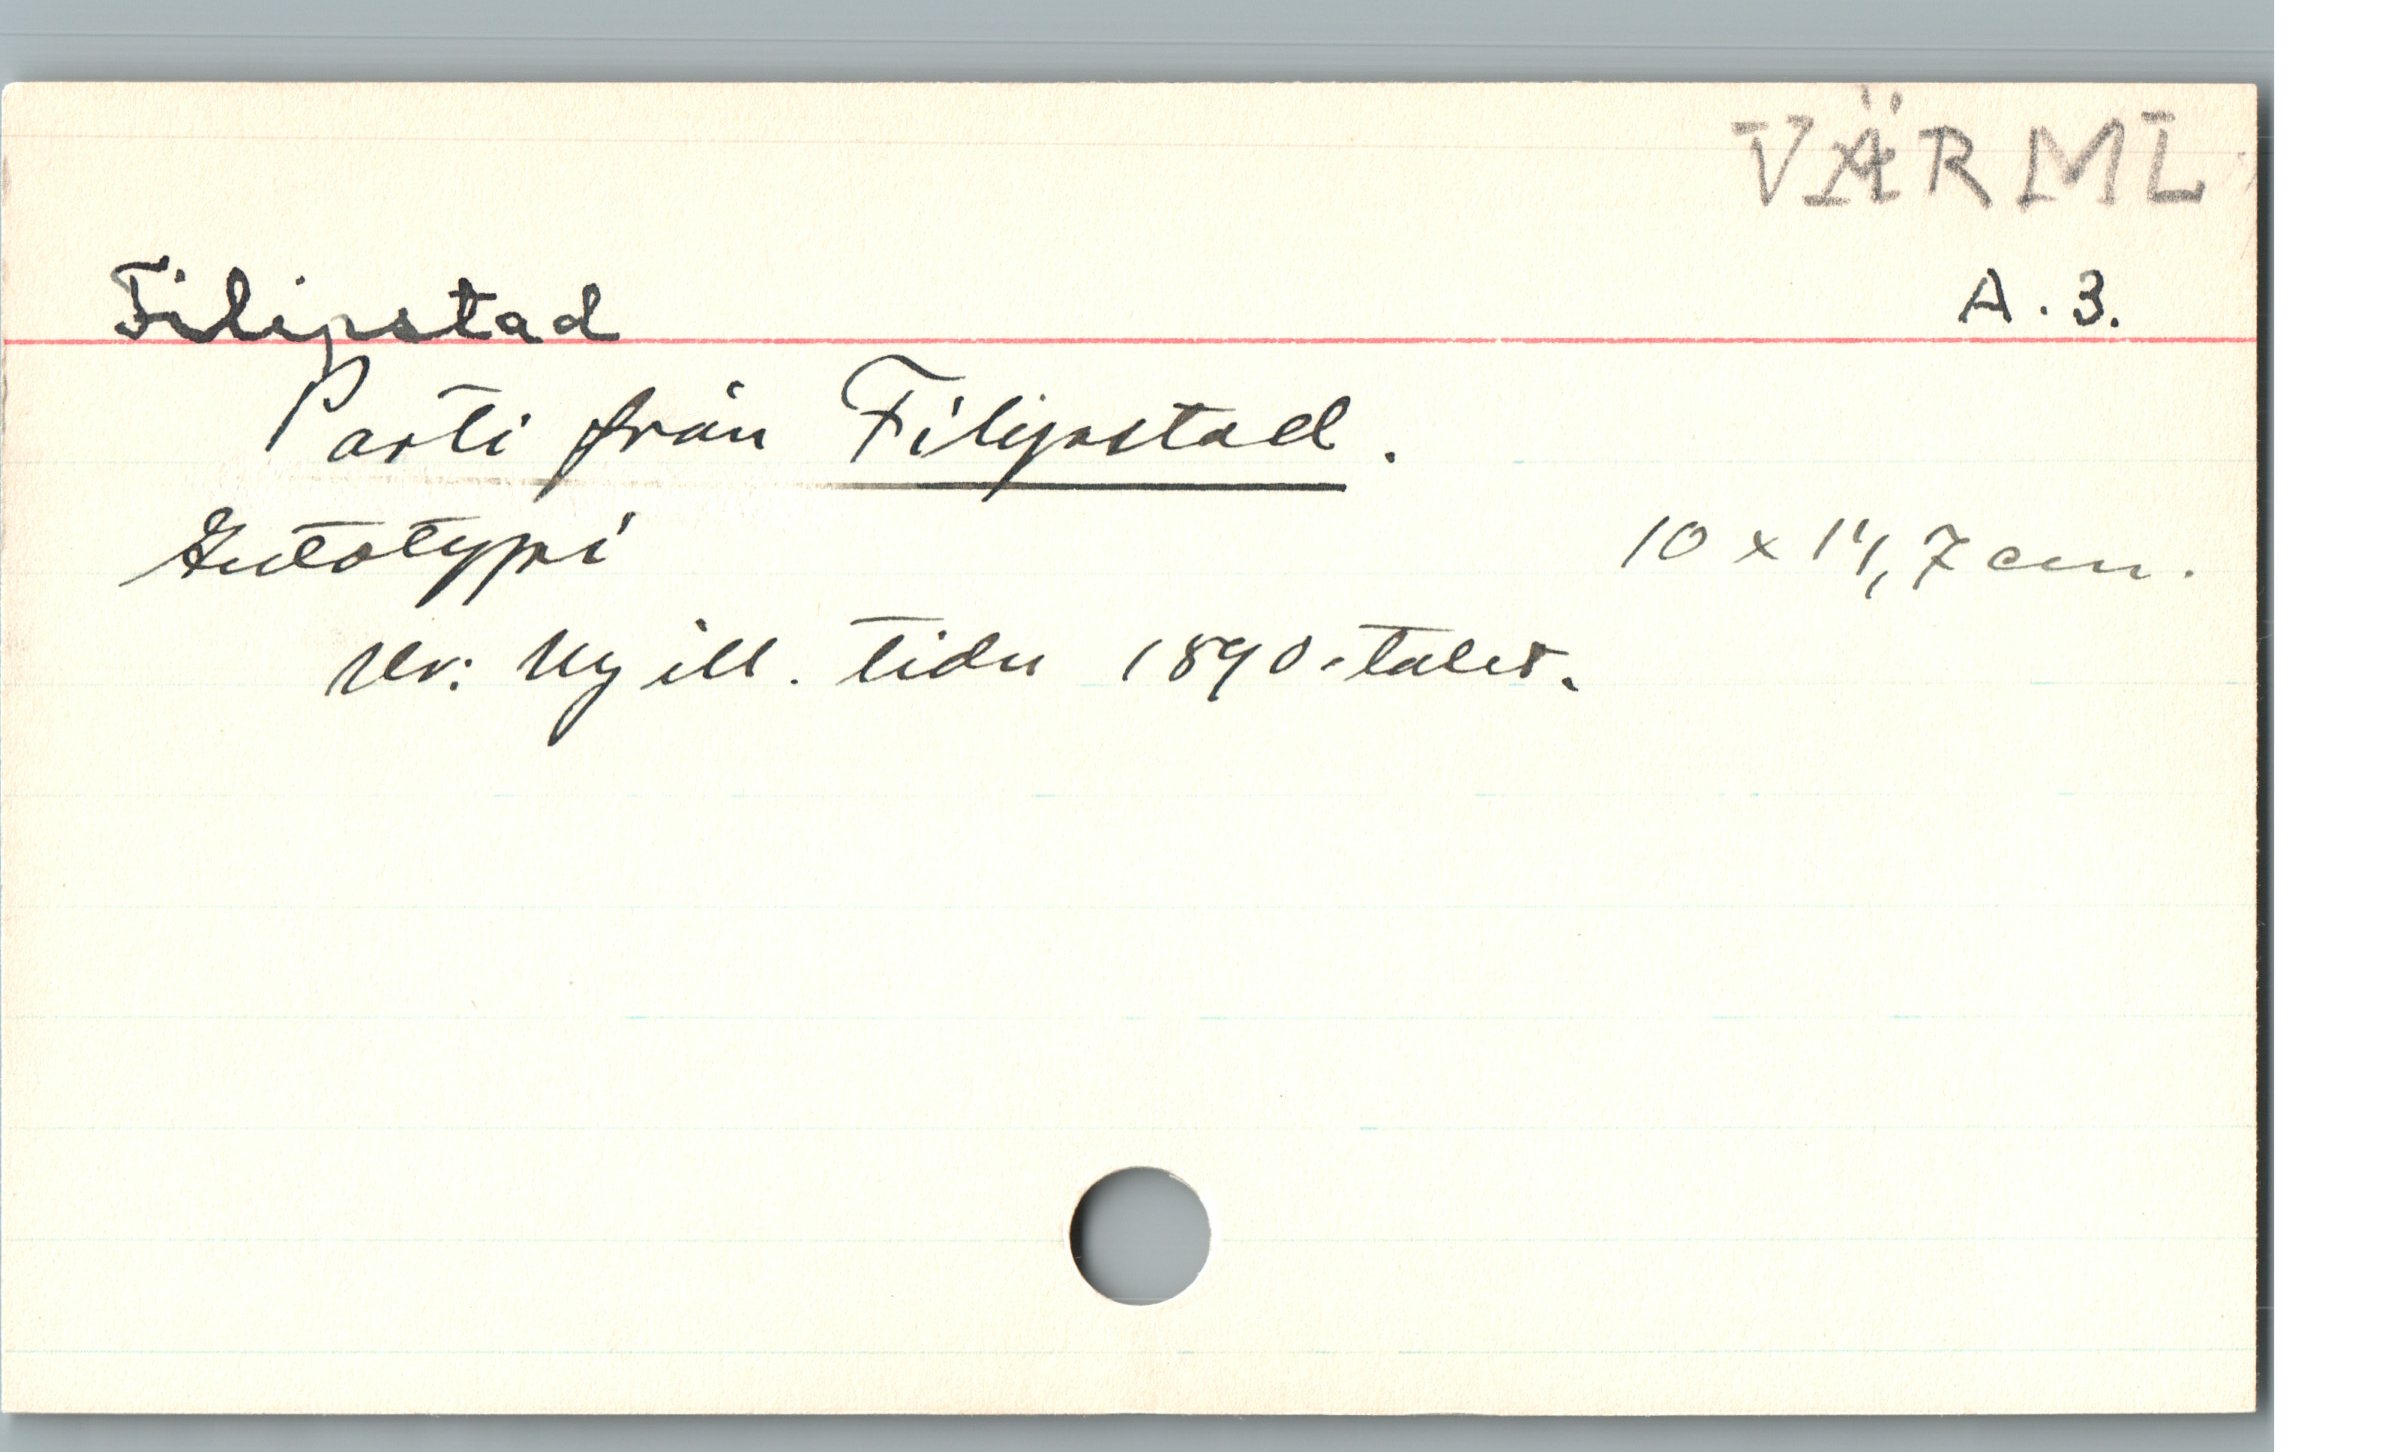 VÄRML
Filipstad A. 3.
Parti från Filipstad.
Autotypi 10 x 14,7 cm.
Ur: Ny ill. tidn 1890-talet.